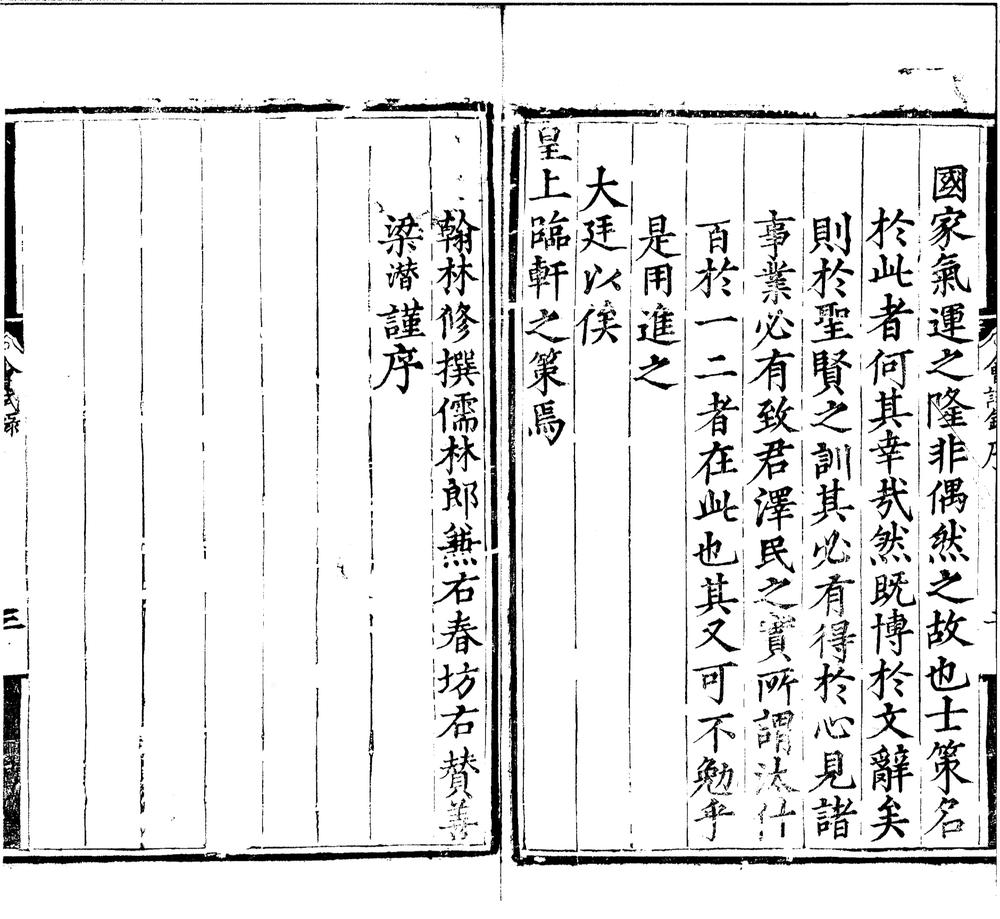 國家氣運之隆非偶然之故也士策名
於此者何其幸哉然既博於文辭矣
則於聖賢之訓其必有得於心見諸
事業必有致君澤民之實所謂汰什
百於一二者在此也其又可不勉乎
是用進之
大廷以俟
皇上臨軒之策焉
翰林修撰儒林郎兼右春坊右贊善
梁潜謹序
會試錄
三